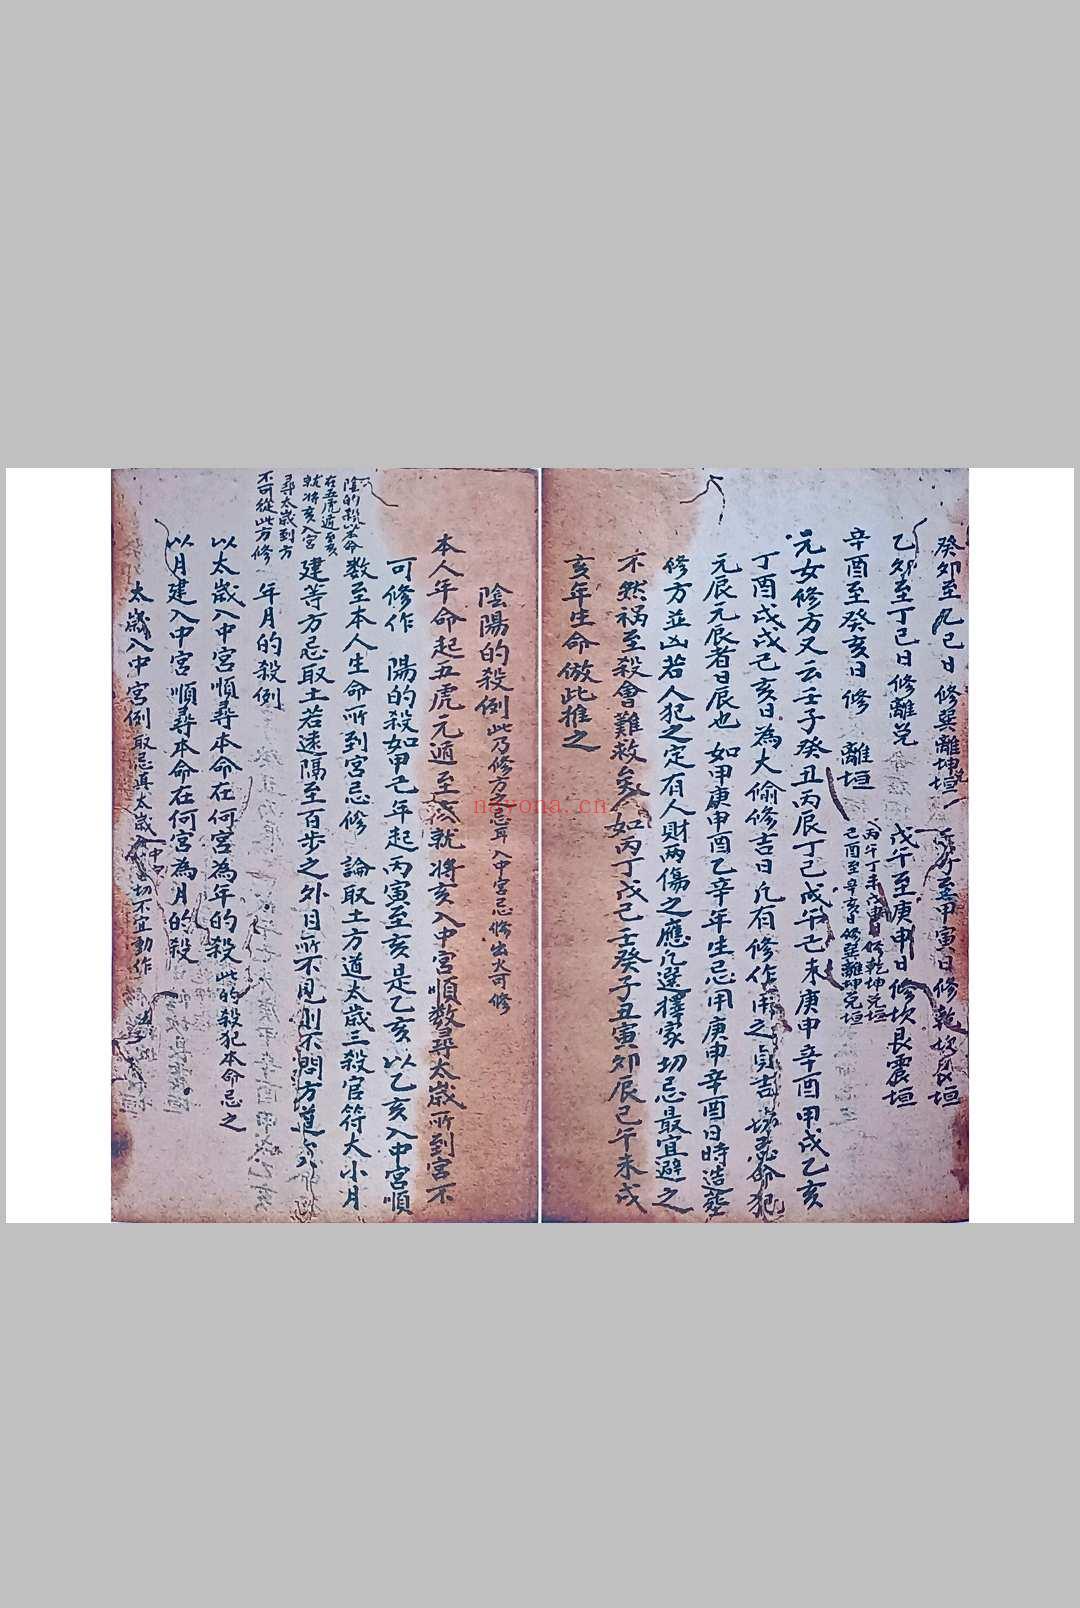 癸卯至 己日 修巽離坤垣 至甲寅日修乾坎艮垣
乙卯至丁巳日修離兌 戊午至庚申日修坎艮震垣
辛酉至癸亥日修 離垣 丙午丁未 修乾坤兌垣
己酉至辛亥日修巽離坤兌垣
元女修方又云壬子癸丑丙辰丁己戊午己未庚申辛酉甲戌乙亥
丁酉戊戌己亥日為大偷修吉日凡有修作用之貞吉 命犯
元辰元辰者日辰也 如甲庚申酉乙辛年生忌用庚申辛酉日時造塟
修方並凶若人犯之定有人財兩傷之應凡選擇家切忌最宜避之
不然祸至殺會難救矣 如丙丁戊己壬癸子丑寅卯辰巳午未戌
亥年生命倣此推之
陰陽的殺例 此乃修方之忌耳 入中宮忌修出火可修
本人年命起五虎元遁至亥就將亥入中宮順数尋太歲所到宮不
可修作 陽的殺如甲己年起丙寅至亥是乙亥 以乙亥入中宮順
陰的殺以本命
在五虎遁至亥
就將亥入宮
尋太歲到方
不可從此方修
数至本人生命所到宮忌修 論取土方道太歲三殺官符大小月
建等方忌取土若遠隔至百步之外目所不見則不問方道
年月的殺例
以太歲入中宮順尋本命在何宮為年的殺 此的殺犯本命忌之
以月建入中宮順尋本命在何宮為月的殺
太歲入中宮例 取忌真太歲入中宮切不宜動作
navona.cn